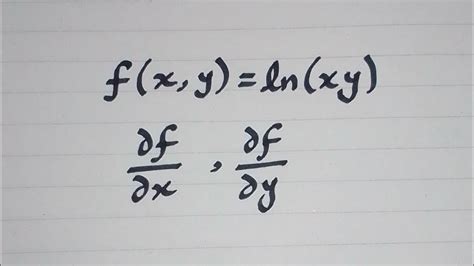 f(x,y)=ln(xy)
∂f/∂x , ∂f/∂y